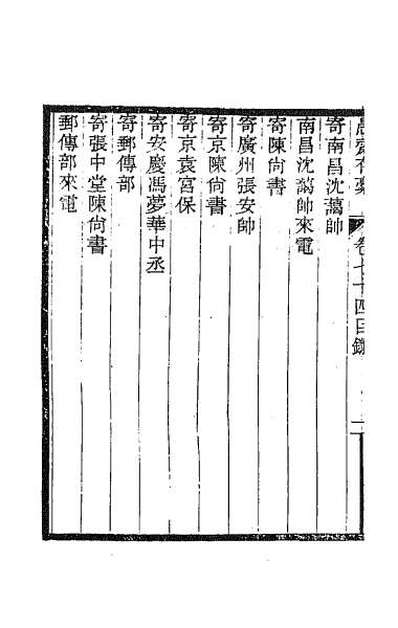 愚齋存稾 卷七十四目錄
寄南昌沈藹帥
南昌沈藹帥來電
寄陳尙書
寄廣州張安帥
寄京陳尙書
寄京袁宮保
寄安慶馮夢華中丞
寄郵傳部
寄張中堂陳尙書
郵傳部來電